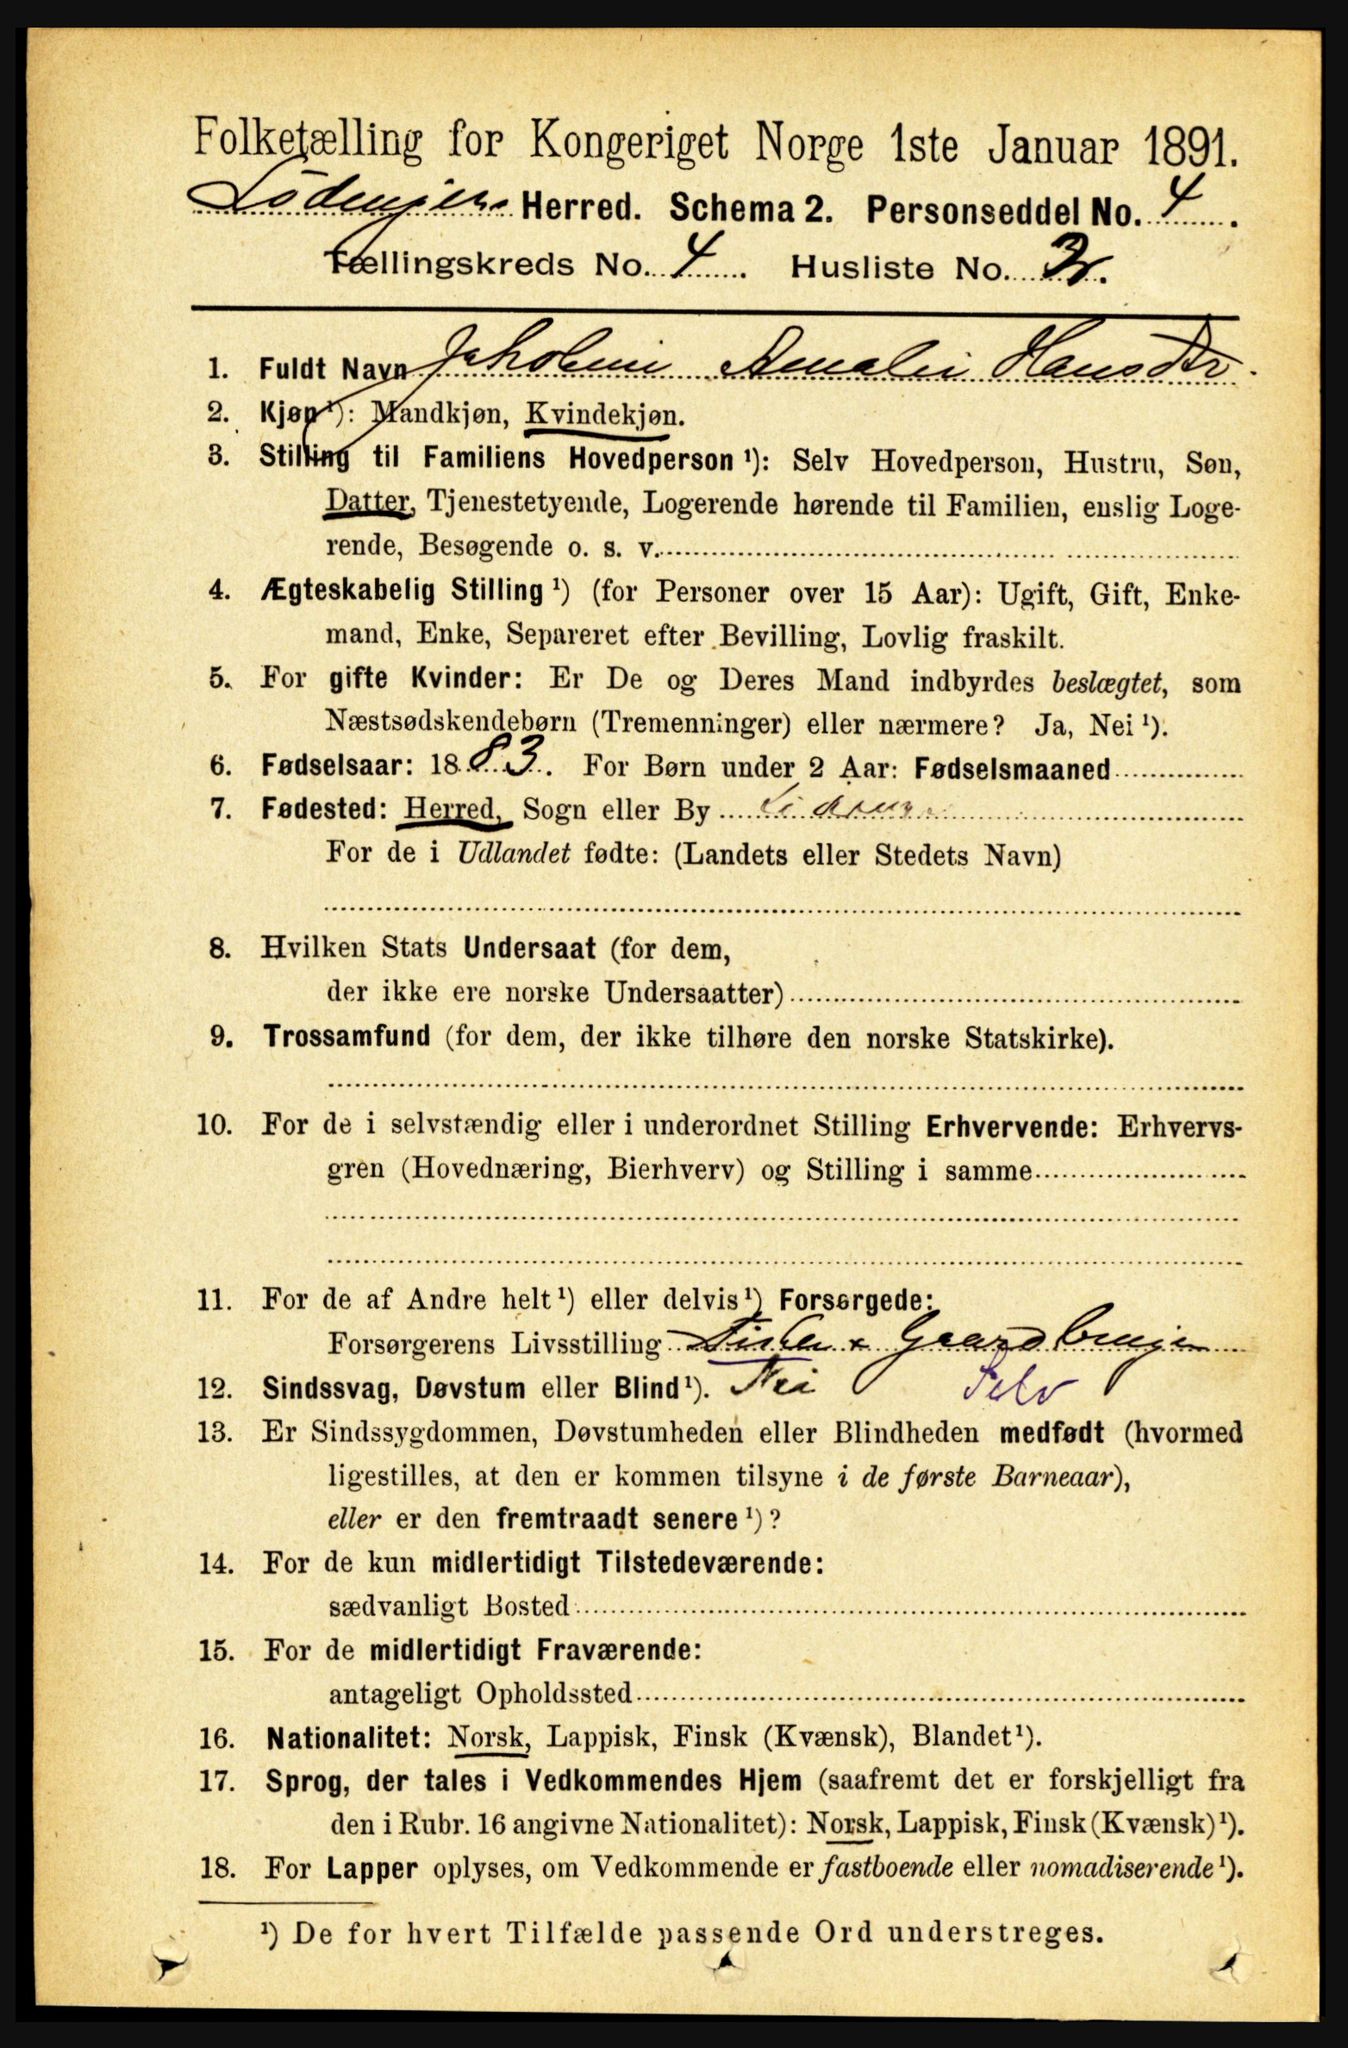 Folketælling for Kongeriget Norge 1ste Januar 1891.
Lødingen Herred. Schema 2. Personseddel No. 4.
Tællingskreds No. 4. Husliste No.
1. Fuldt Navn Jakobine Amalie Hansdtr.
2. Kjøn ¹): Mandkjøn, Kvindekjøn.
3. Stilling til Familiens Hovedperson ¹): Selv Hovedperson, Hustru, Søn,
Datter, Tjenestetyende, Logerende hørende til Familien, enslig Loge-
rende, Besøgende o. s. v.
4. Ægteskabelig Stilling ¹) (for Personer over 15 Aar): Ugift, Gift, Enke-
mand, Enke, Separeret efter Bevilling, Lovlig fraskilt.
5. For gifte Kvinder: Er De og Deres Mand indbyrdes beslægtet, som
Næstsødskendebørn (Tremenninger) eller nærmere? Ja, Nei ¹).
6. Fødselsaar: 1883. For Børn under 2 Aar: Fødselsmaaned
7. Fødested: Herred, Sogn eller By
For de i Udlandet fødte: (Landets eller Stedets Navn)
8. Hvilken Stats Undersaat (for dem,
der ikke ere norske Undersaatter)
9. Trossamfund (for dem, der ikke tilhøre den norske Statskirke).
10. For de i selvstændig eller i underordnet Stilling Erhvervende: Erhvervs-
gren (Hovednæring, Bierhverv) og Stilling i samme
11. For de af Andre helt ¹) eller delvis ¹) Forsørgede:
Forsørgerens Livsstilling Fisker & Gaardbruger
12. Sindssvag, Døvstum eller Blind ¹). Nei Selv
13. Er Sindssygdommen, Døvstumheden eller Blindheden medfødt (hvormed
ligestilles, at den er kommen tilsyne i de første Barneaar),
eller er den fremtraadt senere ¹)?
14. For de kun midlertidigt Tilstedeværende:
sædvanligt Bosted
15. For de midlertidigt Fraværende:
antageligt Opholdssted
16. Nationalitet: Norsk, Lappisk, Finsk (Kvænsk), Blandet ¹).
17. Sprog, der tales i Vedkommendes Hjem (saafremt det er forskjelligt fra
den i Rubr. 16 angivne Nationalitet): Norsk, Lappisk, Finsk (Kvænsk) ¹).
18. For Lapper oplyses, om Vedkommende er fastboende eller nomadiserende ¹).
¹) De for hvert Tilfælde passende Ord understreges.